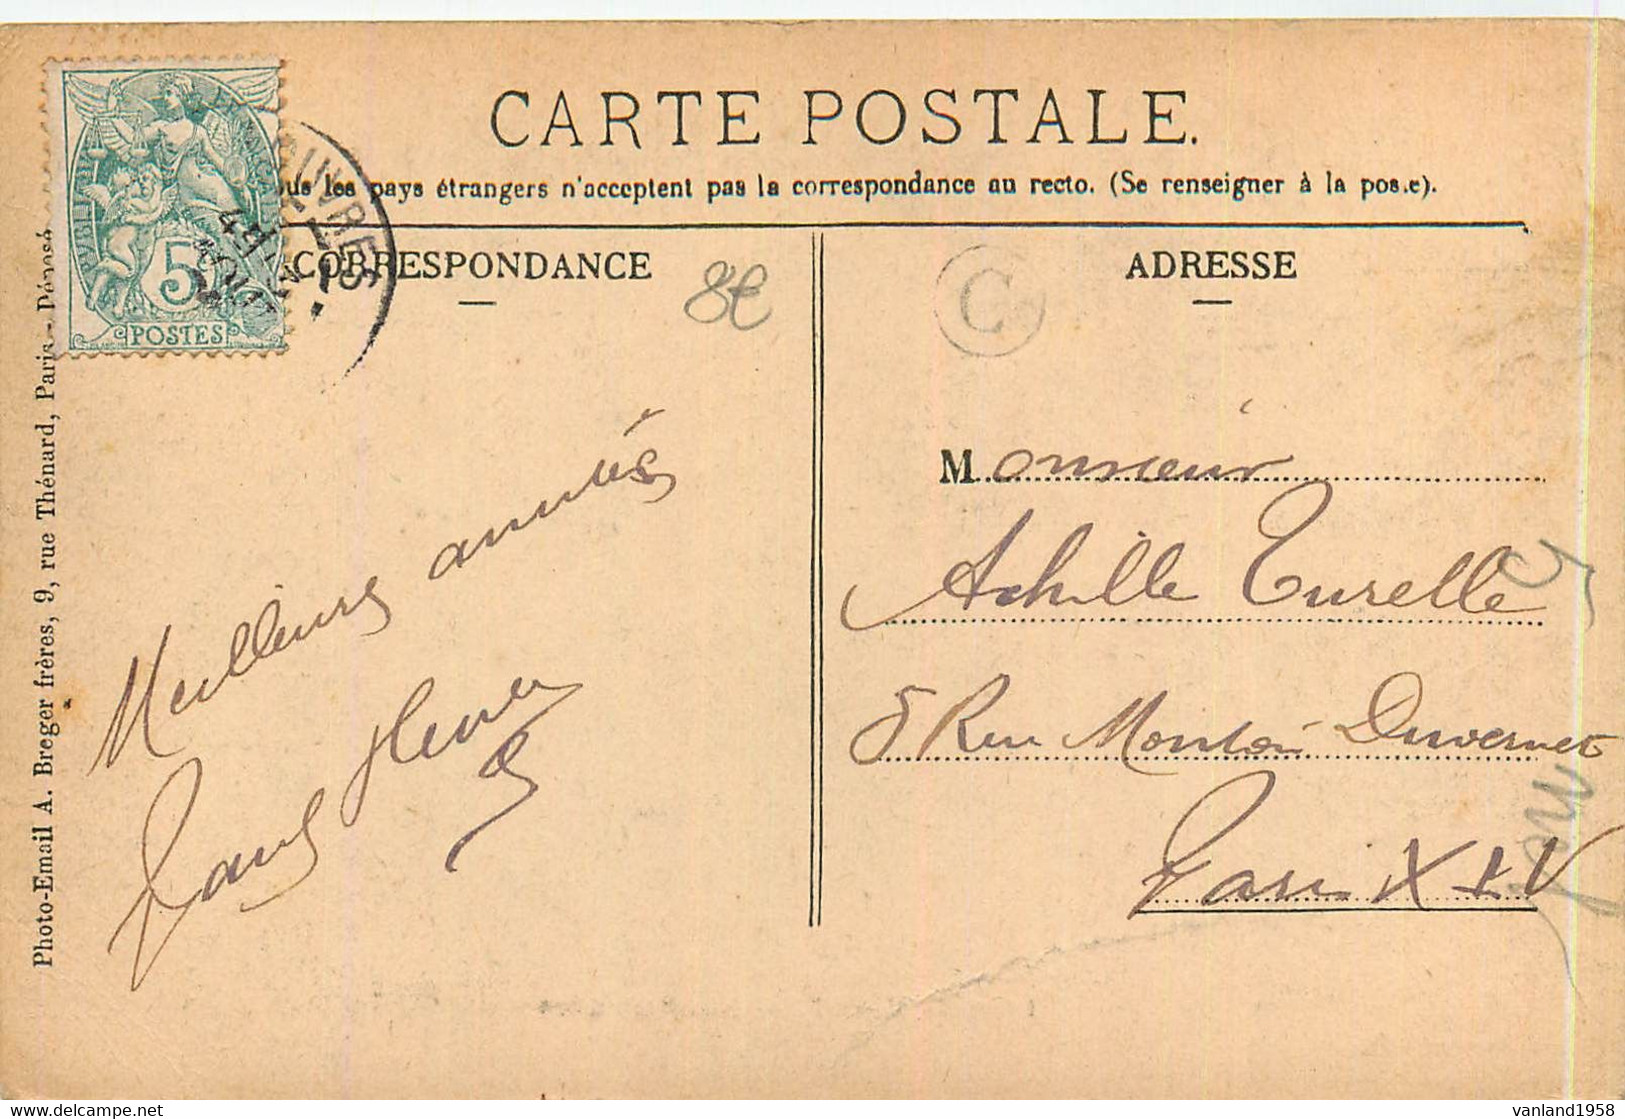 CARTE POSTALE.
les pays étrangers n'acceptent pas la correspondance au recto. (Se renseigner à la poste).
CORRESPONDANCE
ADRESSE
8€
C
5
POSTES
Photo-Email A. Breger frères, 9, rue Thénard, Paris - Déposé
Meilleurs
Monsieur
Achille Turelle
5 Rue Mouton Duvernet
Paris XIV
vanland1958